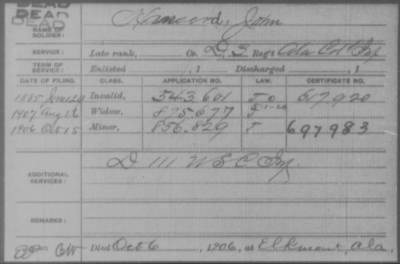 DEAD DEAD
DEAD
NAME OF SOLDIER: Hancord, John
SERVICE: Late rank, Co. D, 3 Reg't Colo Col Inf
TERM OF SERVICE: Enlisted , 1 Discharged , 1
DATE OF FILING. CLASS. APPLICATION NO. LAW. CERTIFICATE NO.
1885 Invalid, 543.601 617.920
1907 Aug 26 Widow, 875.677
1906 Oct 15 Minor, 856.829 697983
D 111 U S C Inf.
ADDITIONAL SERVICES:
REMARKS:
Died Oct 6, 1906, at Elkmont, Ala.